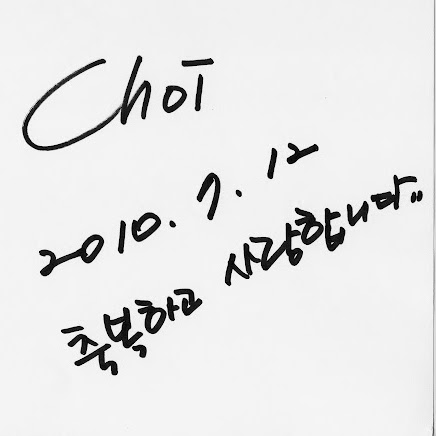 Choi
2010. 7. 12
축복하고 사랑합니다..